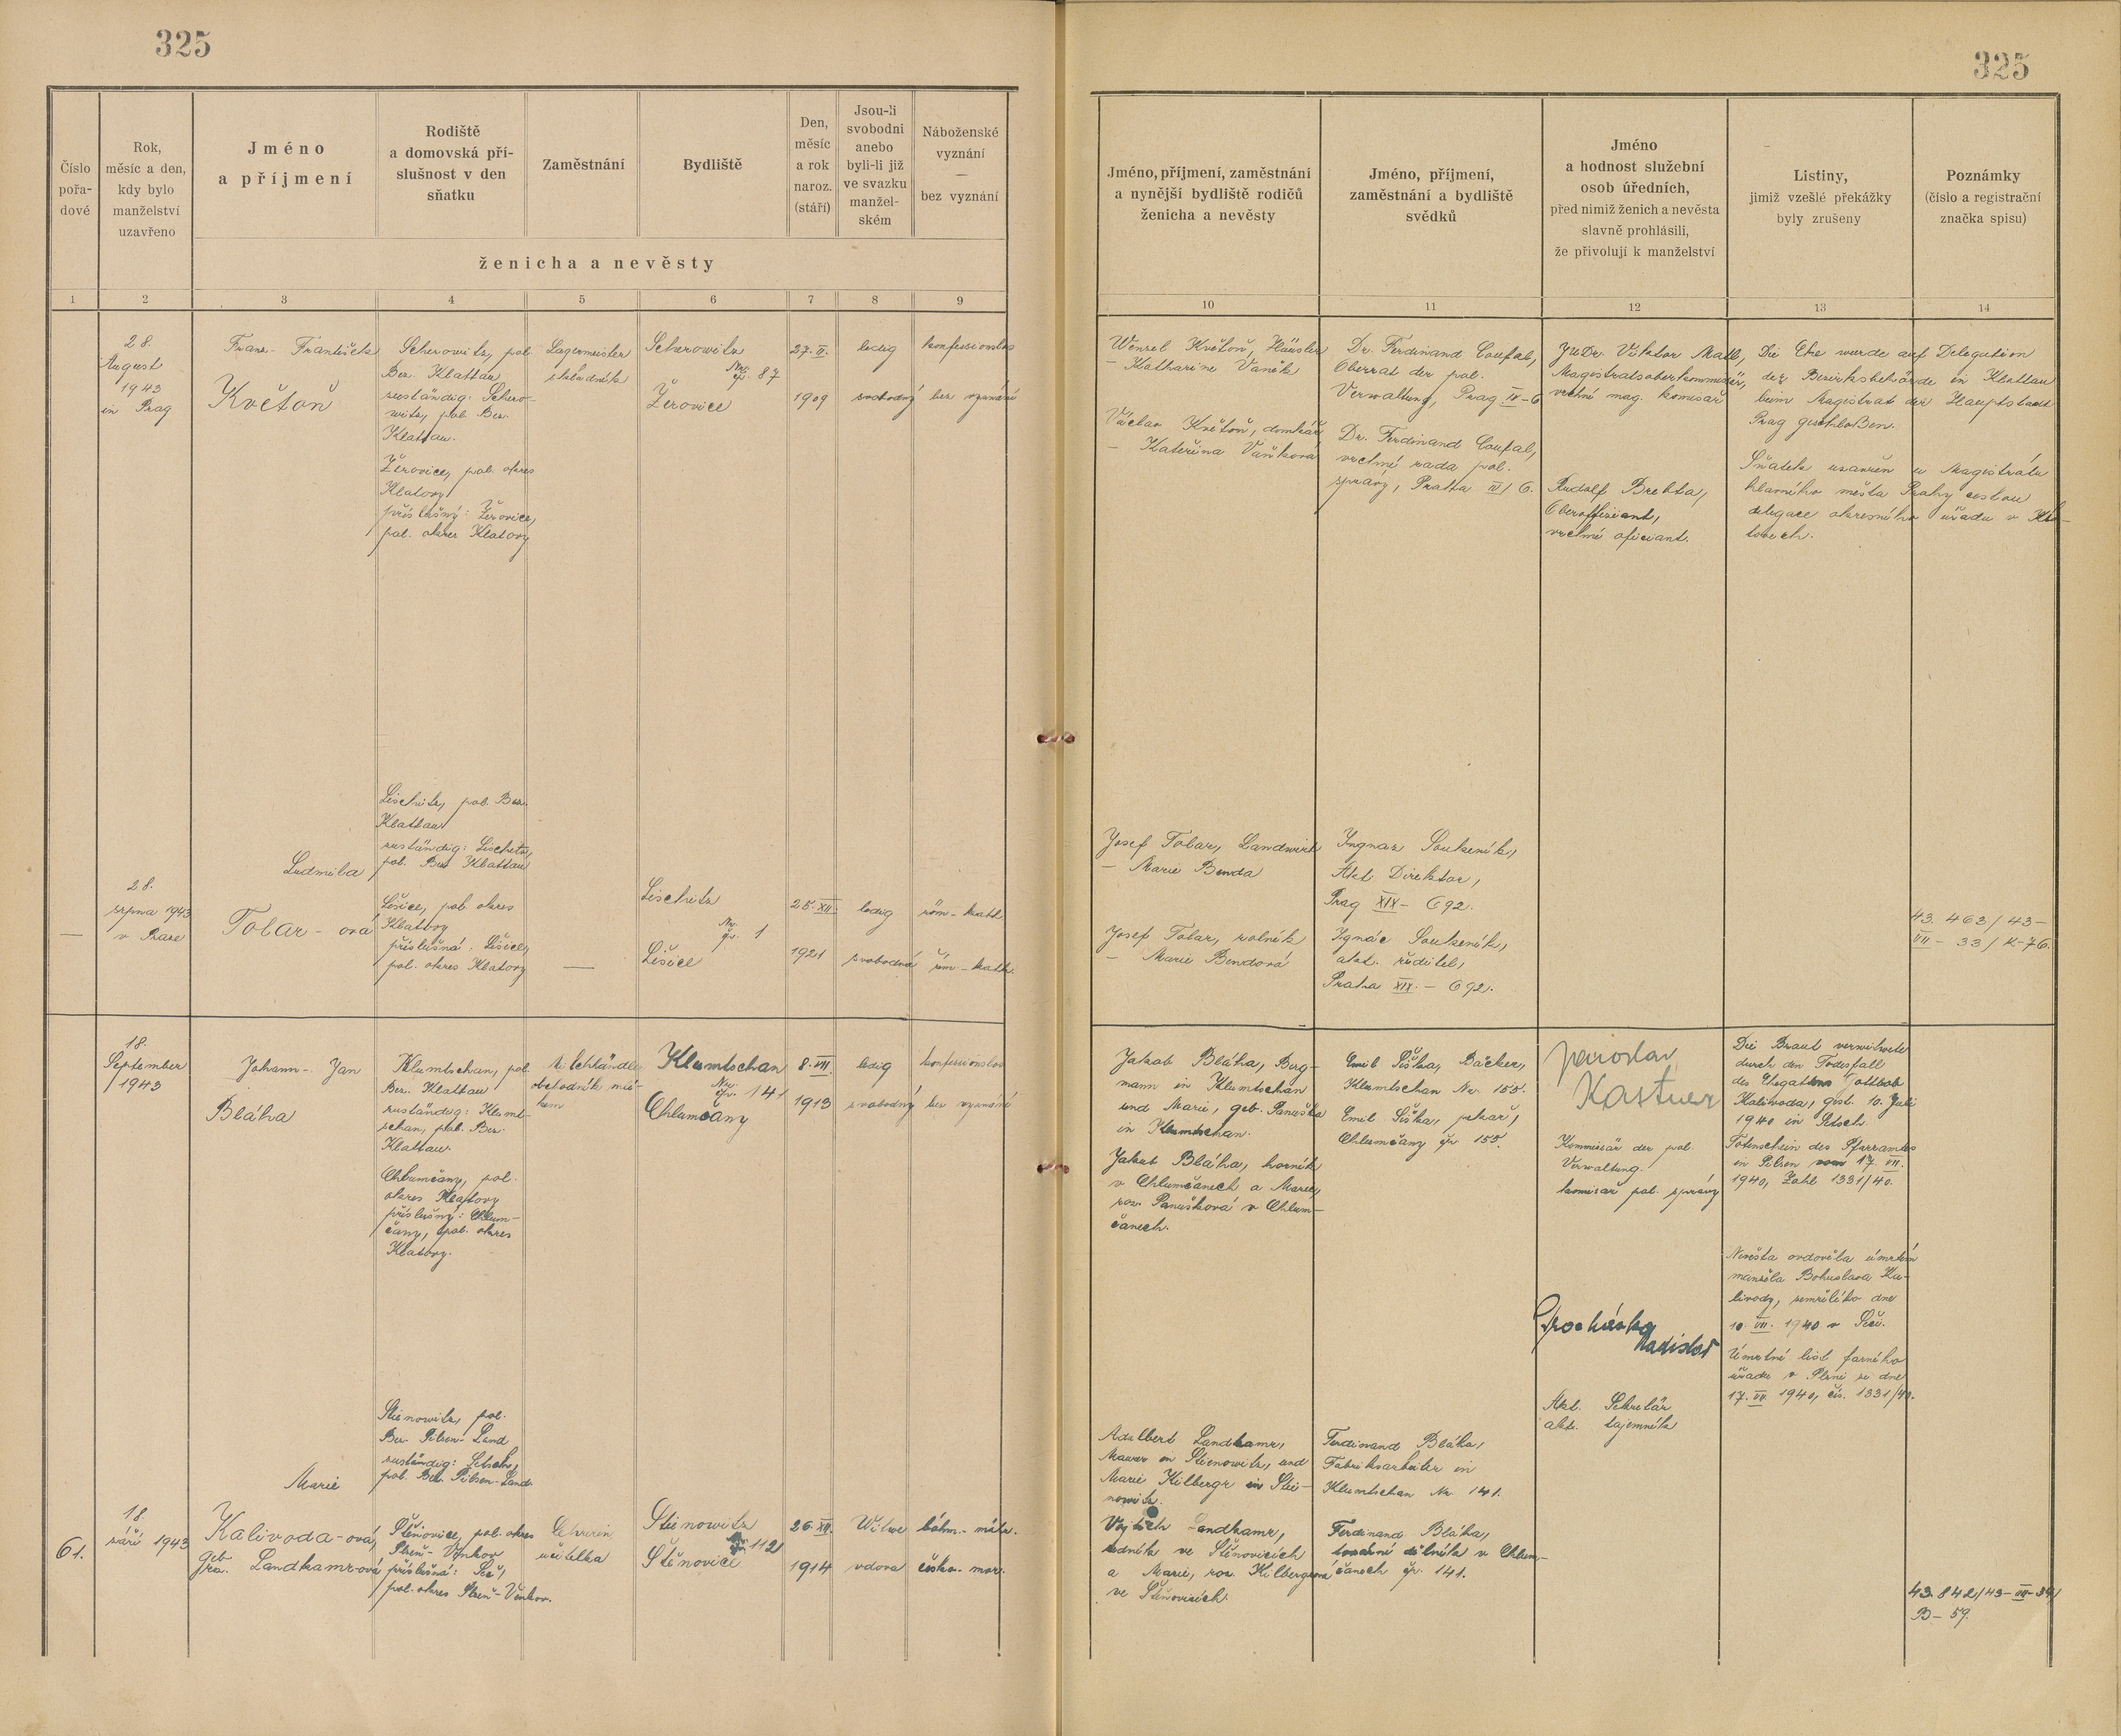 325
325
Číslo
pořa-
dové
Rok,
měsíc a den,
kdy bylo
manželství
uzavřeno
Jméno
a příjmení
Rodiště
a domovská pří-
slušnost v den
sňatku
Zaměstnání
Bydliště
Den,
měsíc
a rok
naroz.
(stáří)
Jsou-li
svobodni
anebo
byli-li již
ve svazku
manžel-
ském
Náboženské
vyznání
—
bez vyznání
ženicha a nevěsty
Jméno, příjmení, zaměstnání
a nynější bydliště rodičů
ženicha a nevěsty
Jméno, příjmení,
zaměstnání a bydliště
svědků
Jméno
a hodnost služební
osob úředních,
před nimiž ženich a nevěsta
slavně prohlásili,
že přivolují k manželství
Listiny,
jimiž vzešlé překážky
byly zrušeny
Poznámky
(číslo a registrační
značka spisu)
1 2 3 4 5 6 7 8 9 10 11 12 13 14
28.
August
1943
in Prag
Franz - František
Květoň
Scherowitz, pol.
Bez. Klattau
zuständig: Schero-
witz, pol. Bez.
Klattau.
Žerovice, pol. okres
Klatovy
příslušný: Žerovice,
pol. okres Klatovy
Lagermeister
skladník
Scherowitz
Nr.
čp. 87
Žerovice
27. II.
1909
ledig
svobodný
konfessionslos
bez vyznání
Wenzel Květoň, Häusler
– Katharine Vaněk
Václav Květoň, domkář
– Kateřina Vaňková
Dr. Ferdinand Coufal,
Oberrat der pol.
Verwaltung, Prag IV-6
Dr. Ferdinand Coufal,
vrchní rada pol.
správy, Praha IV/6.
JUDr. Viktor Matl,
Magistratsoberkommissär,
vrchní mag. komisař
Rudolf Brehta,
Oberoffiziant,
vrchní oficiant.
Die Ehe wurde auf Delegation
der Bezirksbehörde in Klattau
beim Magistrat der Hauptstadt
Prag geschloßen.
Sňatek uzavřen u Magistrátu
hlavního města Prahy cestou
delegace okresního úřadu v Kla-
tovech.
28.
srpna 1943
v Praze
—
Ludmila
Tolar - ová
Lischitz, pol. Bez.
Klattau
zuständig: Lischitz,
pol. Bez. Klattau
Lišice, pol. okres
Klatovy
příslušná: Lišice,
pol. okres Klatovy
—
Lischitz
Nr.
čp. 1
Lišice
25. XII.
1921
ledig
svobodná
röm-kath.
řím-kath.
Josef Tolar, Landwirt
– Marie Benda
Josef Tolar, rolník
– Marie Bendová
Ingnaz Soukeník,
Akt. Direktor,
Prag XIX - 692.
Ignác Soukeník,
akt. ředitel,
Praha XIX. - 692.
43. 463/43-
VII - 33/K-76.
18.
September
1943
Johann - Jan
Bláha
Klumtschan, pol.
Bez. Klattau
zuständig: Klumt-
schan, pol. Bez.
Klattau.
Chlumčany, pol.
okres Klatovy
příslušný: Chlum-
čany, pol. okres
Klatovy.
obchodník mlé-
kem
Klumtschan
Nr.
čp. 141
Chlumčany
8. VII.
1913
ledig
svobodný
konfessionslos
bez vyznání
Jakob Bláha, Berg-
mann in Klumtschan
und Marie, geb. Panuška
in Klumtschan.
Jakub Bláha, horník
v Chlumčanech a Marie,
roz. Panušková v Chlum-
čanech.
Emil Šiška, Bäcker,
Klumtschan Nr. 155.
Emil Šiška, pekař,
Chlumčany čp. 155.
Jaroslav
Kastner
Kommissär der pol.
Verwaltung.
komisař pol. správy
Procházka
Ladislav
Akt. Sekretär
akt. tajemník
Die Braut verwitwete
durch den Todesfall
des Ehegatten Gottlob
Kalivoda, gest. 10. Juli
1940 in Petsch.
Totenschein des Pfarramtes
in Pilsen vom 17. VII.
1940, Zahl 1331/40.
Nevěsta ovdověla úmrtím
manžela Bohuslava Ka-
livody, zemřelého dne
10. VII. 1940 v Peči.
Úmrtní list farního
úřadu v Plzni ze dne
17. VII 1940, čís. 1331/40.
61.
18.
září 1943
Marie
Kalivoda-ová,
geb.
roz. Landkamr-ová
Stienowitz, pol.
Bez. Pilsen-Land
zuständig: Petsch,
pol. Bez. Pilsen-Land
Štěnovice, pol. okres
Plzeň-Venkov
příslušná: Peč,
pol. okres Plzeň-Venkov.
Lehrerin
učitelka
Stienowitz
čp. 112
Štěnovice
26. XII.
1914
Witwe
vdova
böhm.-mähr.
česko-mor.
Adalbert Landkamr,
Maurer in Stienowitz, und
Marie Kilbergr in Stie-
nowitz.
Vojtěch Landkamr,
zedník ve Štěnovicích
a Marie, roz. Kilbergrová
ve Štěnovicích.
Ferdinand Bláha,
Fabriksarbeiter in
Klumtschan Nr. 141.
Ferdinand Bláha,
tovární dělník v Chlum-
čanech čp. 141.
43. 842/43-VII-34/
B-59.